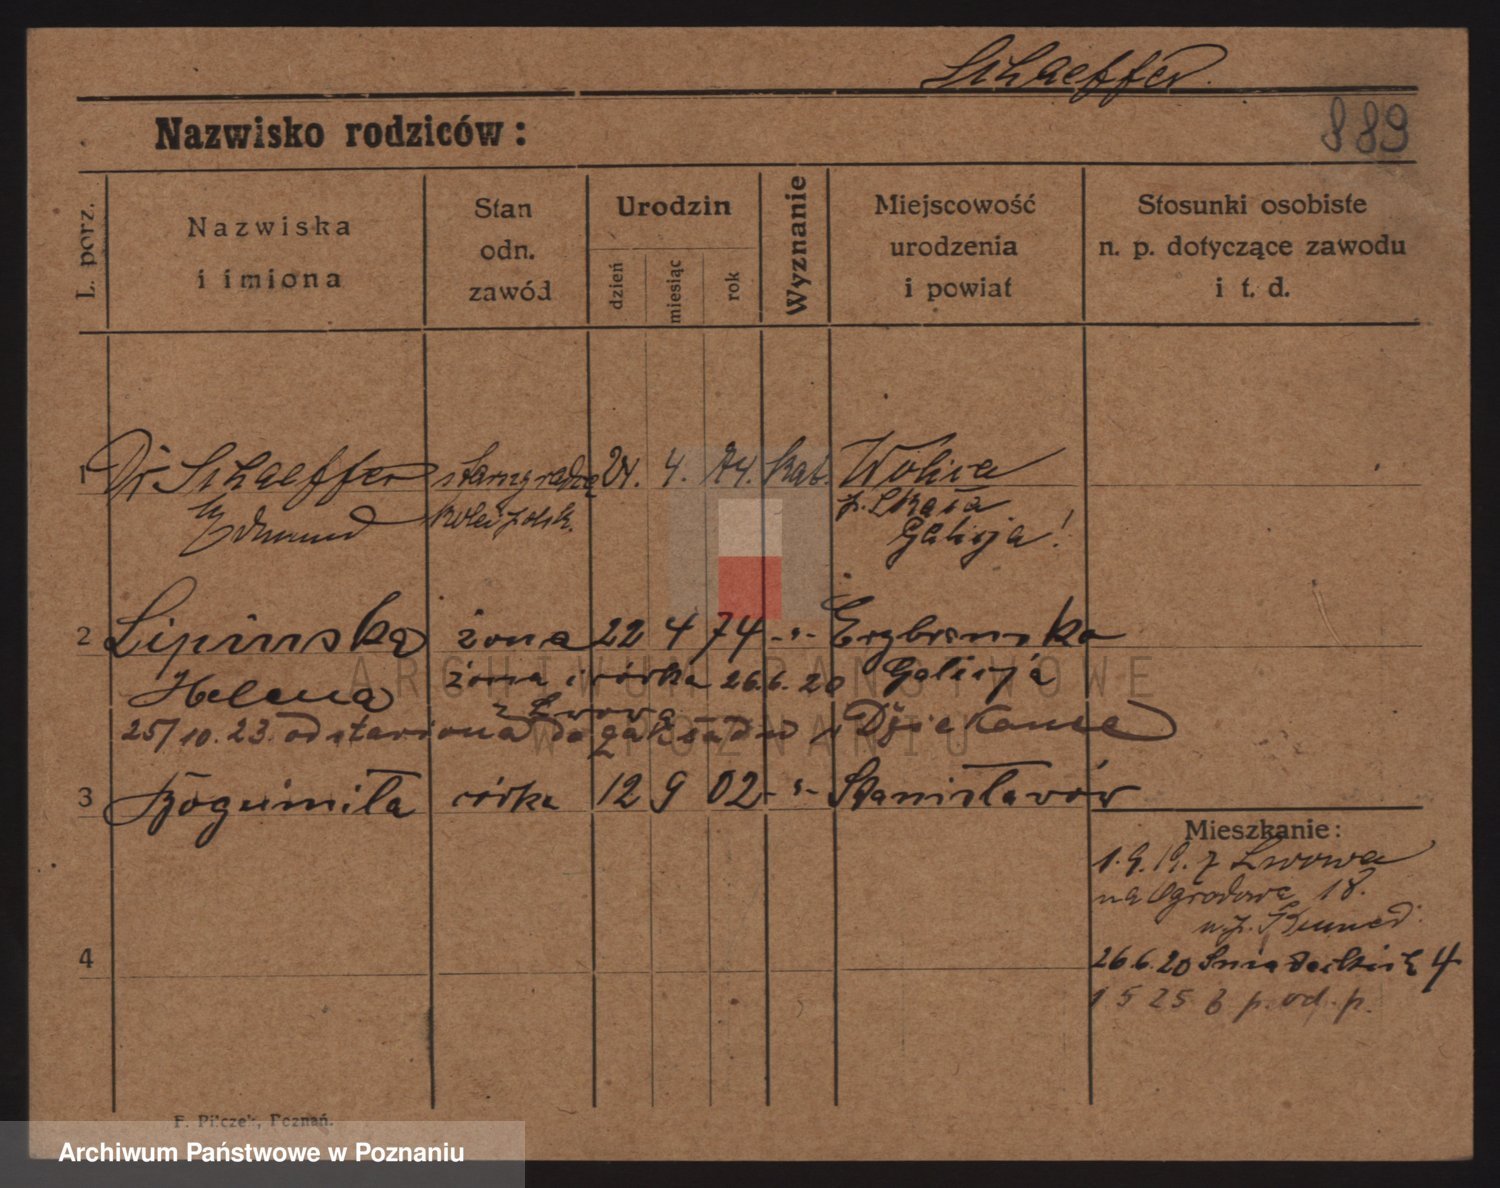 Schaeffer
Nazwisko rodziców:
889
L. porz.
Nazwiska
i imiona
Stan
odn.
zawód
Urodzin
dzień
miesiąc
rok
Wyznanie
Miejscowość
urodzenia
i powiat
Stosunki osobiste
n. p. dotyczące zawodu
i t. d.
1 Dr Schaeffer 24. 4. 74. kat. Wolica
Edmund
Galicja!
2 Lipinska żona 22 4 74 -"-
Helena żona i córka 26.6.20 Galicja
z Lwowa
25/10. 23. odstawiona do
3 Bogumiła córka 12 9 02 -"- Stanisławów
Mieszkanie:
1. 9. 19. z Lwowa
na Ogrodowa 18.
26.6.20 Sniadeckich 4
4
1 5 25 p. od. p.
F. Pilczek, Poznań.
ARCHIWUM PAŃSTWOWE
W POZNANIU
Archiwum Państwowe w Poznaniu